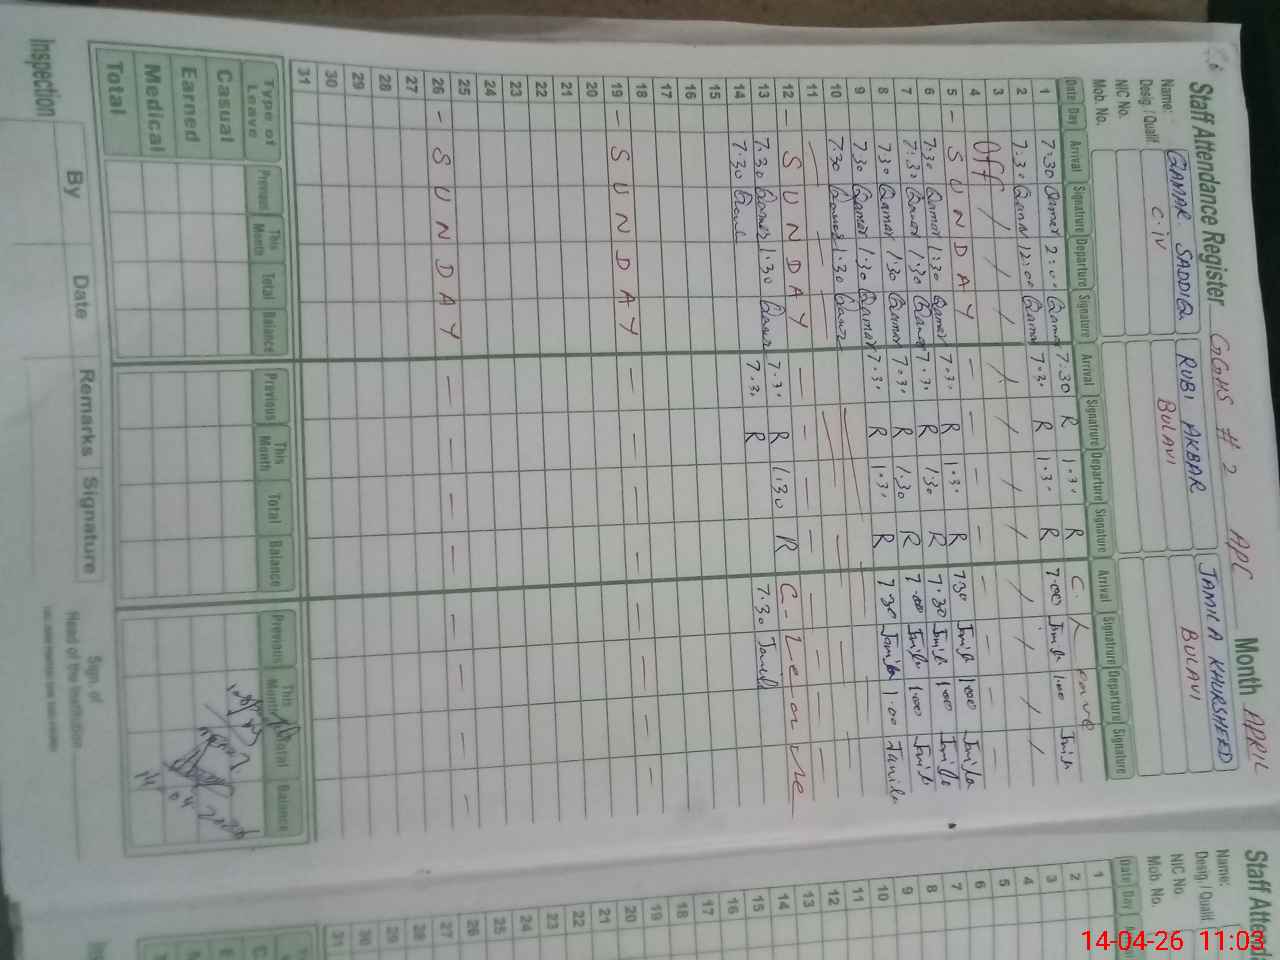 Staff Attendance Register GGHS # 2 APC Month APRIL
Name: QAMAR SADDIQ RUBI AKBAR JAMILA KHURSHEED
Desig./Qualif C-iv BULAVI BULAVI
NIC No.
Mob. No.
Date Day Arrival Signatrure Departure Signature Arrival Signatrure Departure Signature Arrival Signatrure Departure Signature
1 7:30 Qamar 2:00 Qamar 7.30 R 1.30 R C. Leave
2 7:30 Qamar 12:00 Qamar 7.30 R 1.30 R 7.00 Jamila 1.00 Jamila
3 Off
4
5 - SUNDAY
6 7:30 Qamar 1:30 Qamar 7.30 R 1.30 R 7.30 Jamila 1.00 Jamila
7 7:30 Qamar 1:30 Qamar 7.30 R 1.30 R 7.30 Jamila 1.00 Jamila
8 7:30 Qamar 1:30 Qamar 7.30 R 1.30 R 7.00 Jamila 1.00 Jamila
9 7:30 Qamar 1:30 Qamar 7.30 R 1.30 R 7.30 Jamila 1.00 Jamila
10 7:30 Qamar 1:30 Qamar
11
12 - SUNDAY
13 7.30 Qamar 1.30 Qamar 7.30 R 1.30 R C-Leave
14 7.30 Qamar 7.30 R 7.30 Jamila
15
16
17
18
19 - SUNDAY
20
21
22
23
24
25
26 - SUNDAY
27
28
29
30
31
Type of Leave Previous This Month Total Balance Previous This Month Total Balance Previous This Month Total Balance
Casual
Earned
Medical
Total
14/04/2026
Inspection By Date Remarks Signature
Sign. of
Head of the Institution
Staff Attenda
Name:
Desig./Qualif
NIC No.
Mob. No.
Date Day
1
2
3
4
5
6
7
8
9
10
11
12
13
14
15
16
17
18
19
20
21
22
23
24
25
26
27
28
29
30
31
14-04-26 11:03